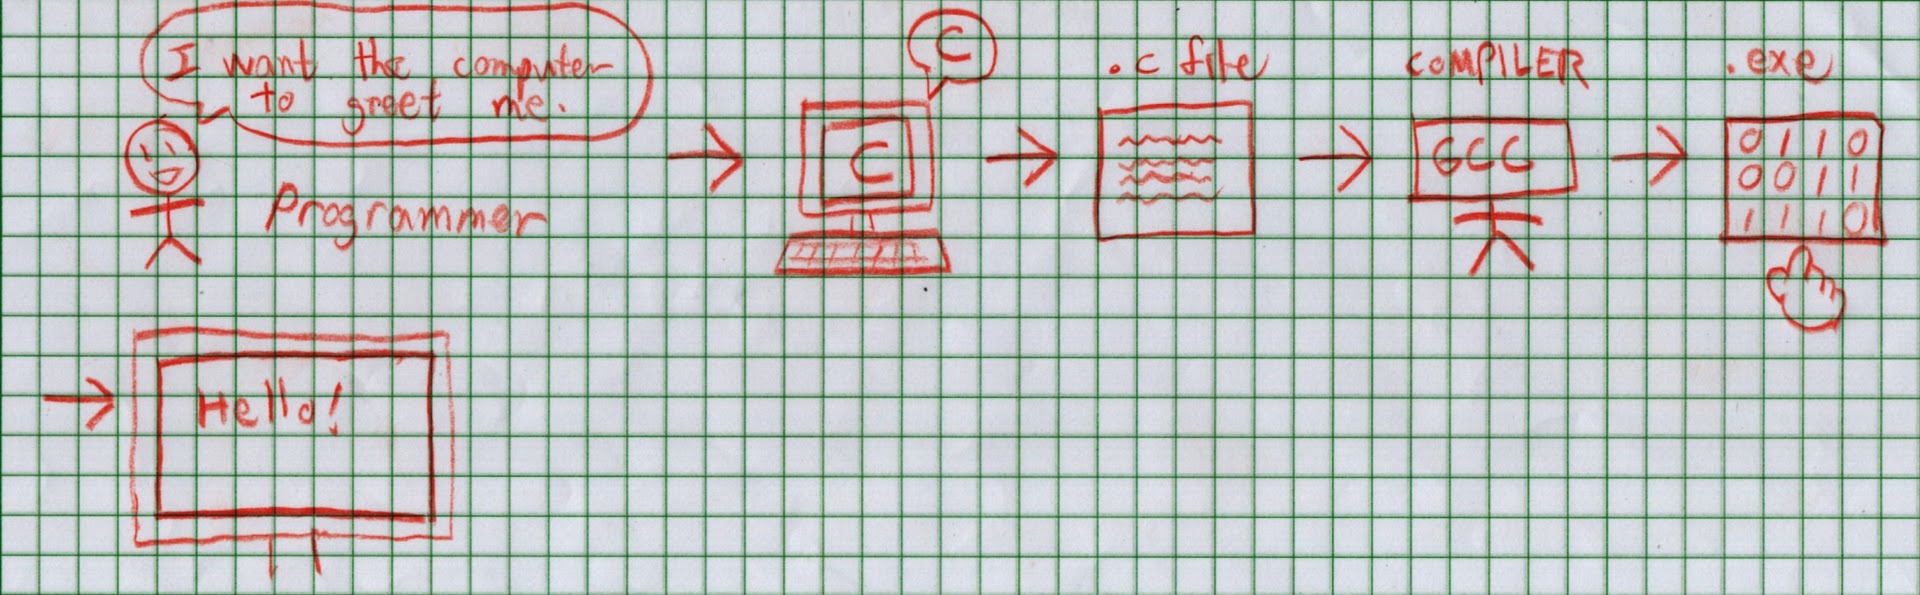 I want the computer
to greet me.
Programmer
C
C
.c file
COMPILER
GCC
.exe
0110
0011
1110
Hello!